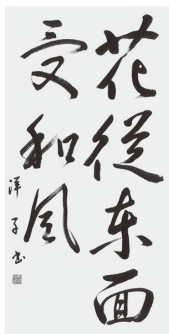 花從东面
受和風
洋子書